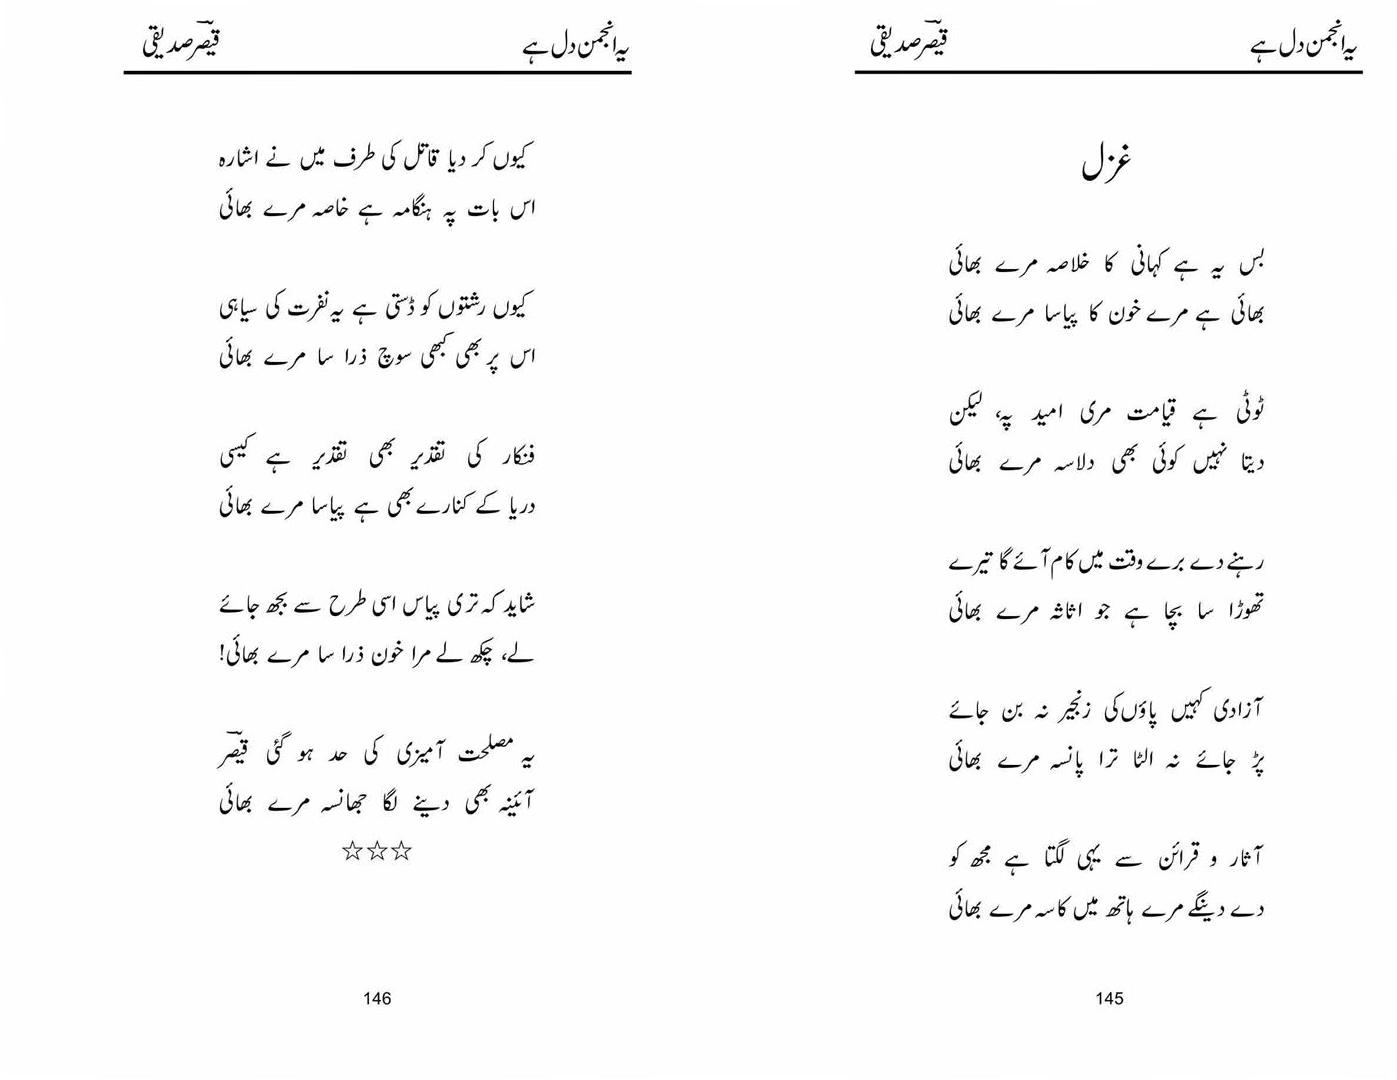 یہ انجمن دل ہے
قیصرؔ صدیقی
غزل
بس یہ ہے کہانی کا خلاصہ مرے بھائی
بھائی ہے مرے خون کا پیاسا مرے بھائی
ٹوٹی ہے قیامت مری امید پہ، لیکن
دیتا نہیں کوئی بھی دلاسہ مرے بھائی
رہنے دے برے وقت میں کام آئے گا تیرے
تھوڑا سا بچا ہے جو اثاثہ مرے بھائی
آزادی کہیں پاؤں کی زنجیر نہ بن جائے
پڑ جائے نہ الٹا ترا پانسہ مرے بھائی
آثار و قرائن سے یہی لگتا ہے مجھ کو
دے دینگے مرے ہاتھ میں کاسہ مرے بھائی
145
یہ انجمن دل ہے
قیصرؔ صدیقی
کیوں کر دیا قاتل کی طرف میں نے اشارہ
اس بات پہ ہنگامہ ہے خاصہ مرے بھائی
کیوں رشتوں کو ڈستی ہے یہ نفرت کی سیاہی
اس پر بھی کبھی سوچ ذرا سا مرے بھائی
فنکار کی تقدیر بھی تقدیر ہے کیسی
دریا کے کنارے بھی ہے پیاسا مرے بھائی
شاید کہ تری پیاس اسی طرح سے بجھ جائے
لے، چکھ لے مرا خون ذرا سا مرے بھائی!
یہ مصلحت آمیزی کی حد ہو گئی قیصرؔ
آئینہ بھی دینے لگا جھانسہ مرے بھائی
☆☆☆
146